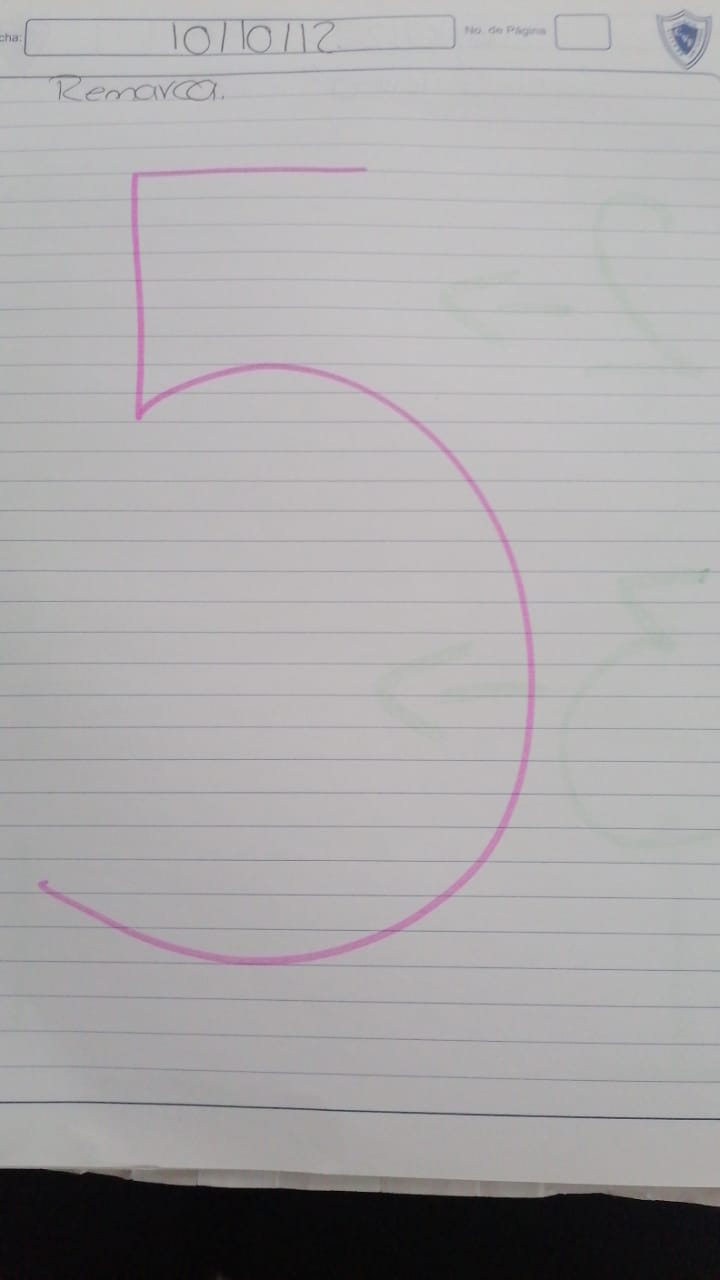 cha: 10/10/12 No. de Página
Remarca.
5